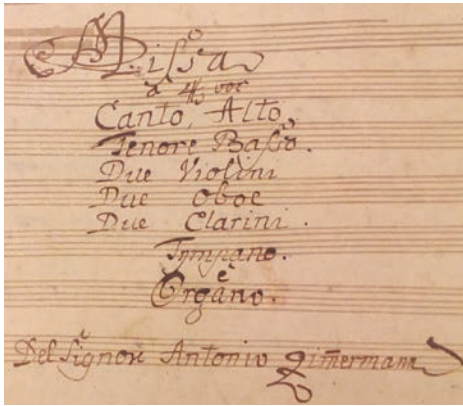 Missa
à 4 voc
Canto, Alto,
Tenore Basso.
Due Violini
Due Oboe
Due Clarini.
Tympano.
è
Organo.
Del Signore Antonio Zimermann